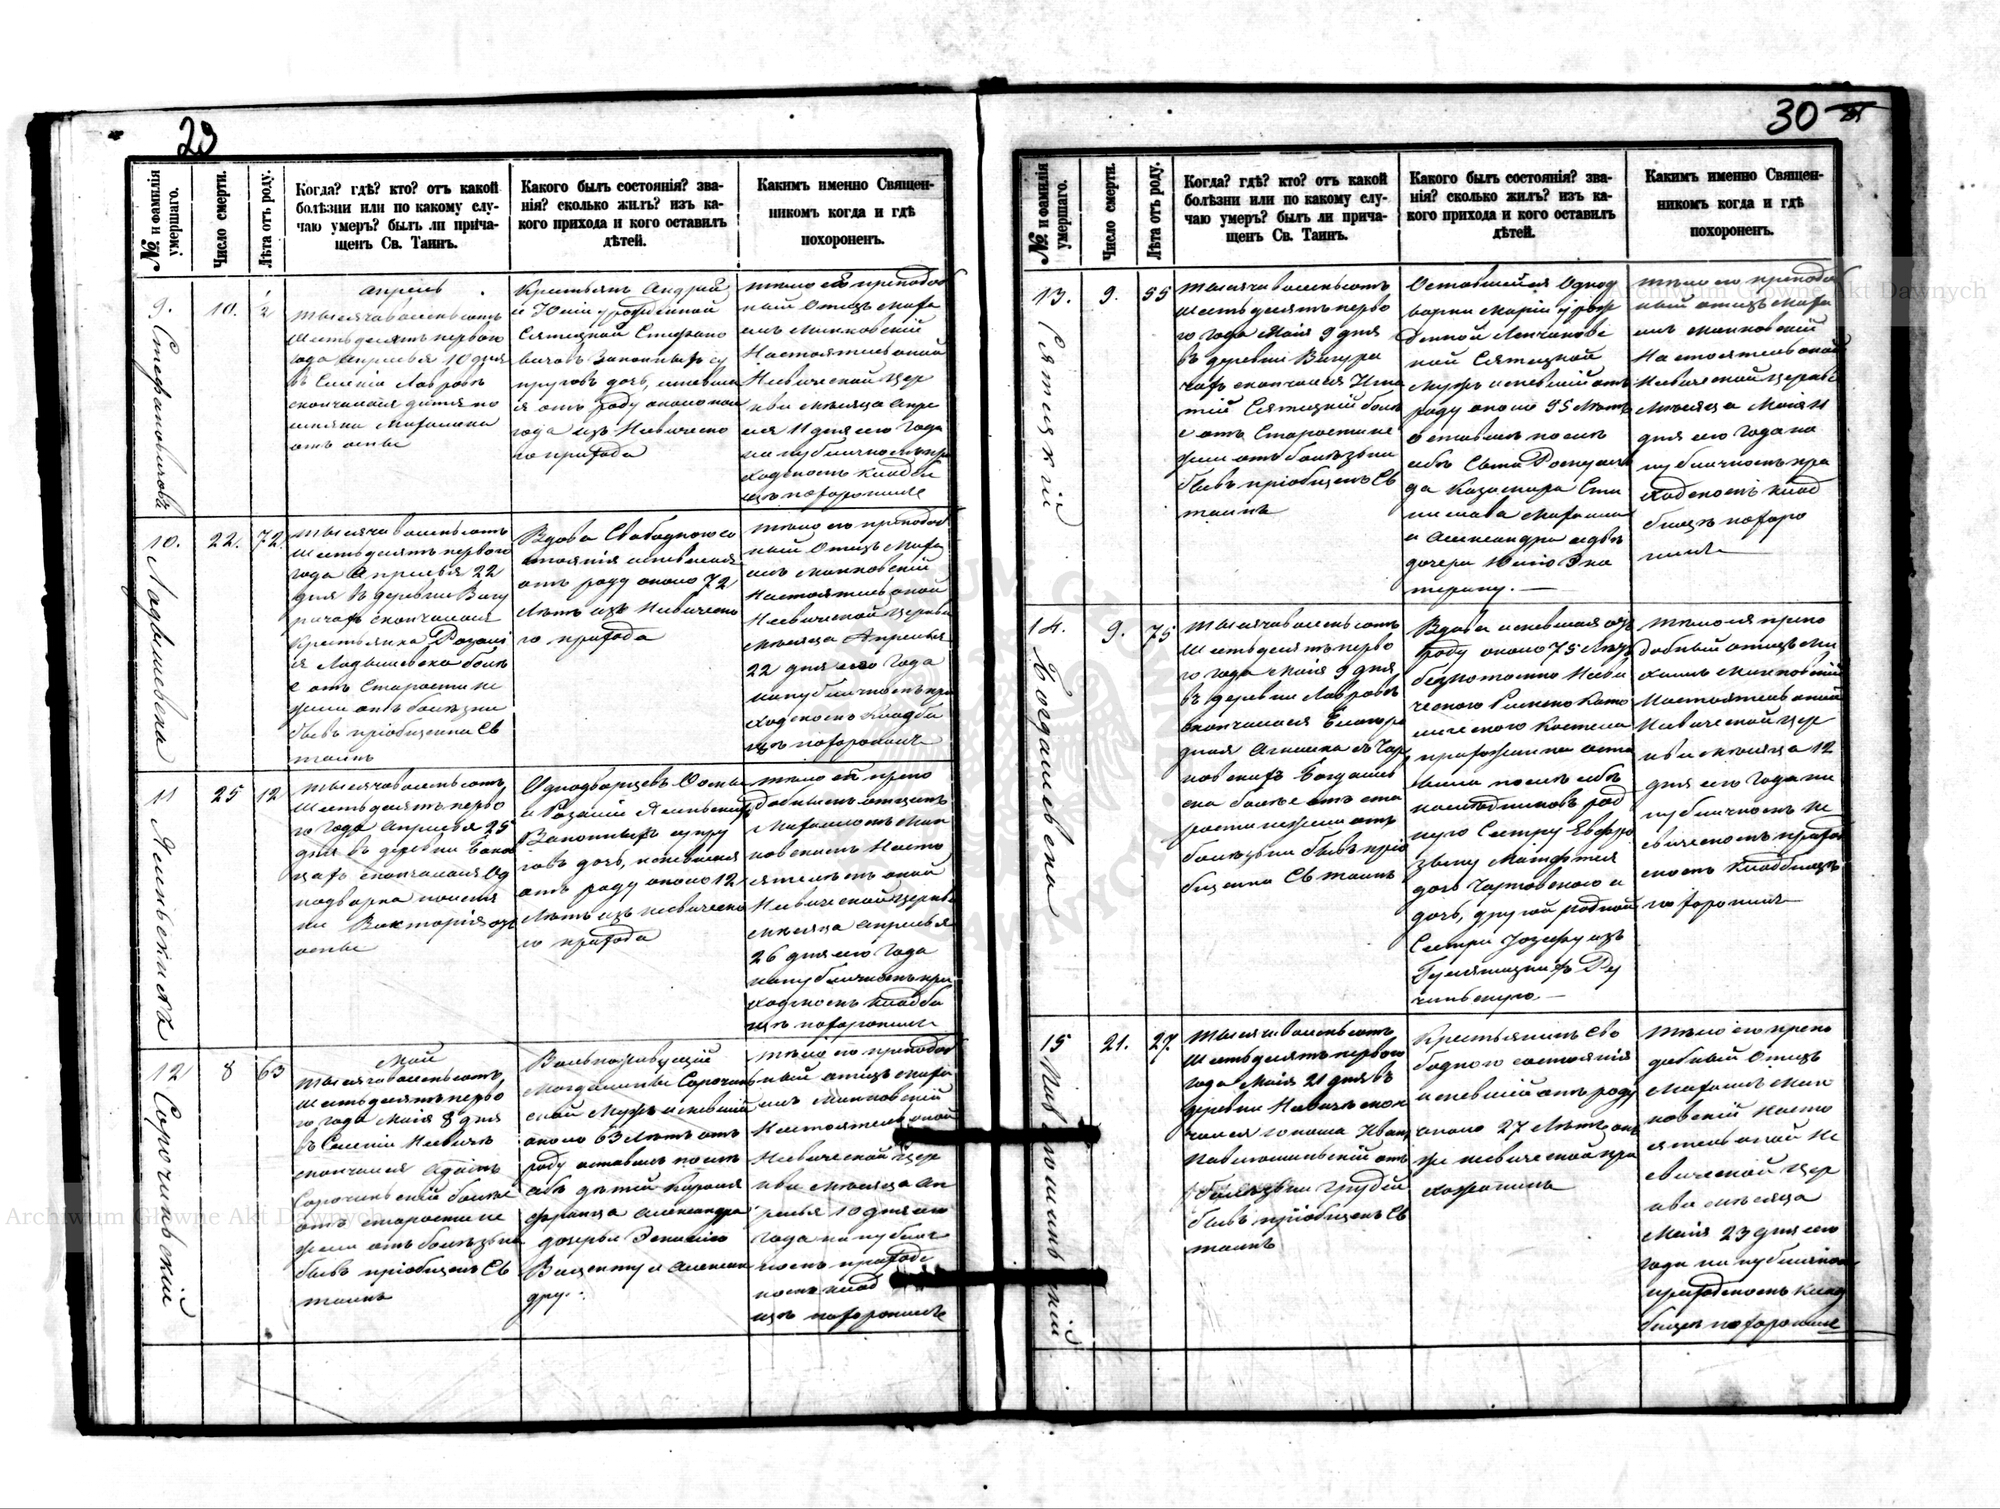 29
№ и фамилія умершаго.
Число смерти.
Лѣта отъ роду.
Когда? гдѣ? кто? отъ какой
болѣзни или по какому слу-
чаю умеръ? былъ ли прича-
щенъ Св. Таинъ.
Какого былъ состоянія? зва-
нія? сколько жилъ? изъ ка-
кого прихода и кого оставилъ
дѣтей.
Какимъ именно Священ-
никомъ когда и гдѣ
похороненъ.
9. Стефановичова
10.
1/2
Апрель
Тысяча восемьсотъ
шестьдесятъ первого
года Апреля 10 дня
въ Селеніи Лавровъ
скончалася
отъ оспы
Крестьянъ Андрей
и Юліи урожденной
Сятецкой Стефано
вичовъ законныхъ су
пруговъ дочь, имевша
я отъ роду около пол
года изъ Невическо
го прихода
тело её преподоб
ный Отецъ Миха
илъ Маньковскій
Настоятель оной
Невической Цер
кви месяца Апре
ля 11 дня сего года
на публичномъ при
ходскомъ кладби
щѣ похоронилъ
10. Ладышевска
22.
72.
Тысяча восемьсотъ
шестьдесятъ первого
года Апреля 22
дня въ деревни Вигу
ричахъ скончалася
Крестьянка Розалі
я Ладышевска боль
е отъ старости не
жели отъ болезни
бывъ пріобщенна Св
таинъ
Вдова Свободного со
стоянія имевшая
отъ роду около 72
лѣтъ изъ Невическо
го прихода
тело ея преподоб
ный Отецъ Миха
илъ Маньковскій
настоятель оной
Невической Церкви
месяца Апреля
22 дня сего года
на публичномъ при
ходскомъ кладби
щѣ похоронилъ
11
25
12
Тысяча восемьсотъ
шестьдесятъ перво
го года Апреля 25
дня въ деревни
скончалася Од
нодворка
Викторія отъ
оспы
Однодворцевъ
и Розаліи
Законныхъ супру
говъ дочь, имевшая
отъ роду около 12
лѣтъ изъ невическо
го прихода
тело её препо
добнымъ отцемъ
Михаиломъ Мань
ковскимъ Насто
ятелемъ оной
Невической Церкви
месяца Апреля
26 дня сего года
на публичномъ при
ходскомъ кладби
щѣ похоронилъ
12 Сорочинскій
8
63
Май
Тысяча восемьсотъ
шестьдесятъ перво
го года Маія 8 дня
въ Селеніи Невичъ
скончался Адамъ
Сорочинскій больше
отъ старости не
жели отъ болезни
бывъ пріобщенъ Св
таинъ
Вольножившущій
Магдалины Сорочинь
ской мужъ имевшій
около 63 лѣтъ отъ
роду оставилъ по
себѣ дѣтей Кароля
Франца Александра
дочерей
Виценту и Алексан
дру.
тело его преподоб
ный отецъ Миха
илъ Маньковскій
Настоятель оной
Невической Цер
кви месяца Ап
реля 10 дня сего
года на публич
номъ приходс
комъ клад
щѣ похоронилъ
30
№ и фамилія умершаго.
Число смерти.
Лѣта отъ роду.
Когда? гдѣ? кто? отъ какой
болѣзни или по какому слу-
чаю умеръ? былъ ли прича-
щенъ Св. Таинъ.
Какого былъ состоянія? зва-
нія? сколько жилъ? изъ ка-
кого прихода и кого оставилъ
дѣтей.
Какимъ именно Священ-
никомъ когда и гдѣ
похороненъ.
13. Сятецкій
9.
55
Тысяча восемьсотъ
шестьдесятъ перво
го года Маія 9 дня
въ деревни Вигури
чахъ скончался Игна
тій Сятецкій боль
е отъ старости не
жели отъ болезни
бывъ пріобщенъ Св
таинъ
Оставшейся Однод
ворки Маріи урож
денной
кой Сятецкой
мужъ имевшій отъ
роду около 55 лѣтъ
оставилъ после
себѣ Сына Ромуаль
да Казимира Ста
нислава Михаила
и Александра и двѣ
дочери Юлію Ека
терину.
тело его преподоб
ный отецъ Миха
илъ Маньковскій
Настоятель оной
Невической Церкви
месяца Маія 11
дня сего года на
публичномъ при
ходскомъ клад
бищѣ похоро
нилъ
14. Богдашевска
9.
75
Тысяча восемьсотъ
шестьдесятъ перво
го года Маія 9 дня
въ деревни Лавровъ
скончалася
Богдашев
ска больше отъ ста
рости нежели отъ
болезни бывъ пріо
бщенна Св таинъ
Вдова имевшая отъ
роду около 75 лѣтъ
безпотомно Неви
ческого Римско Като
лического Костела
прихожанка оста
вила после себѣ
наследниковъ род
ную Сестру Евфро
зыну
дочь Чартовского и
дочь, другой родной
Сестри Юзефу изъ
тело ея препо
добный отецъ Ми
хаилъ Маньковскій
Настоятель оной
Невической Цер
кви месяца 12
дня сего года на
публичномъ Не
вическомъ приход
скомъ кладбищѣ
похоронилъ
15
21.
27.
Тысяча восемьсотъ
шестьдесятъ первого
года Маія 21 дня въ
деревни Невичъ скон
чался юноша Иванъ
Павлюшинскій отъ
болезни грудей
бывъ пріобщенъ Св
таинъ
Крестьянинъ Сво
бодного состоянія
имевшій отъ роду
около 27 лѣтъ онъ
же невической при
хожанинъ
тело его препо
добный Отецъ
Михаилъ Мань
ковскій насто
ятель оной Не
вической Цер
кви месяца
Маія 23 дня сего
года на публичном
приходскомъ клад
бищѣ похоронилъ
Archiwum Główne Akt Dawnych
Archiwum Główne Akt Dawnych